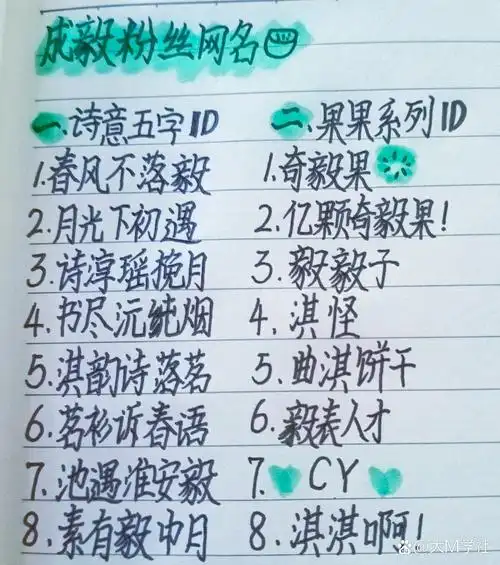 成毅粉丝网名四
一.诗意五字ID
1.春风不落毅
2.月光下初遇
3.诗淳瑶挽月
4.书尽沅纯烟
5.淇韵诗落茗
6.茗衫诉春语
7.池遇淮安毅
8.素有毅中月
二.果果系列ID
1.奇毅果
2.亿颗奇毅果!
3.毅毅子
4.淇怪
5.曲淇饼干
6.毅表人才
7.CY
8.淇淇啊!
大M学社